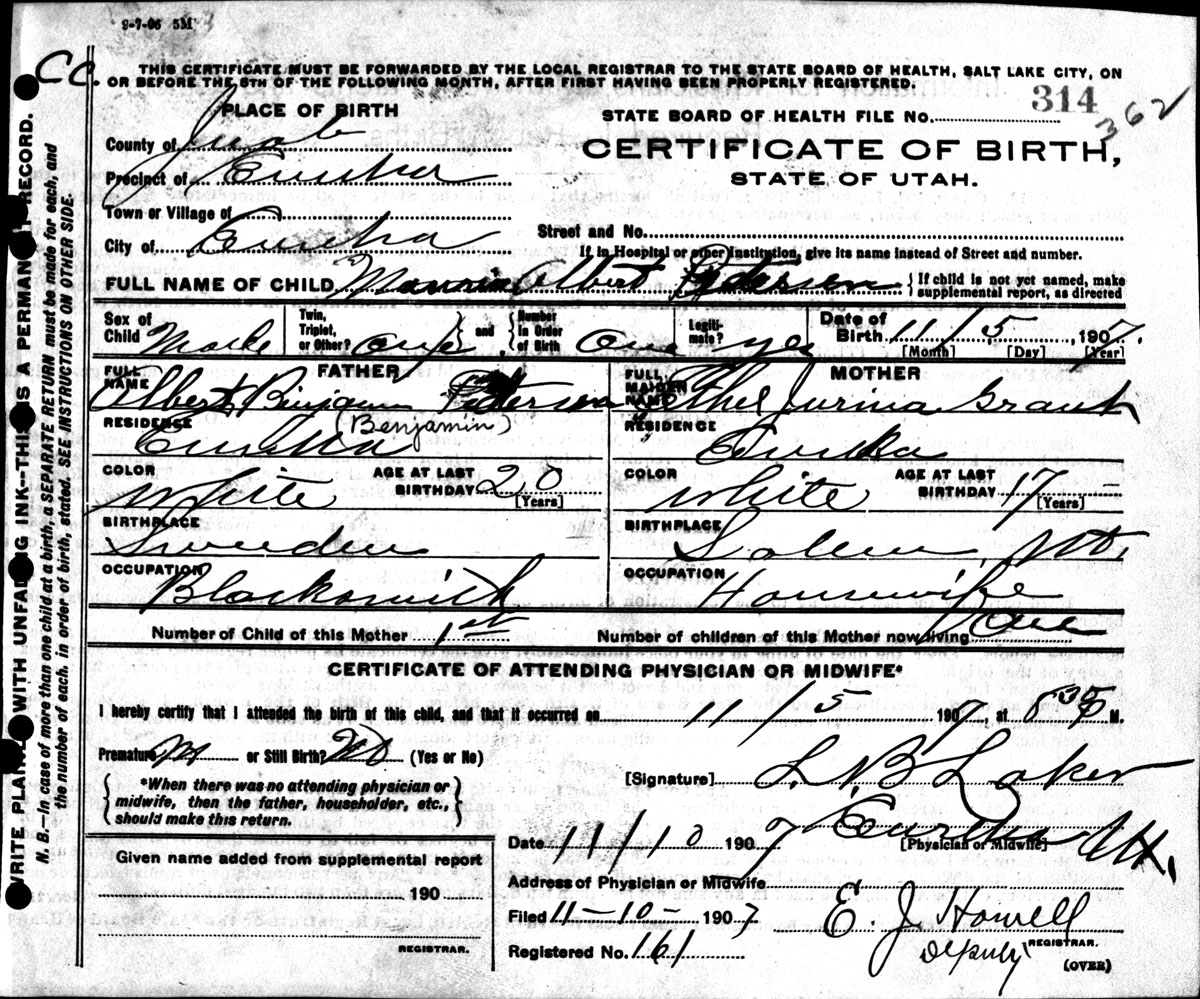 9-7-06 5M
CC.
THIS CERTIFICATE MUST BE FORWARDED BY THE LOCAL REGISTRAR TO THE STATE BOARD OF HEALTH, SALT LAKE CITY, ON
OR BEFORE THE 5TH OF THE FOLLOWING MONTH, AFTER FIRST HAVING BEEN PROPERLY REGISTERED.
WRITE PLAINLY WITH UNFADING INK--THIS IS A PERMANENT RECORD.
N. B.—In case of more than one child at a birth, a SEPARATE RETURN must be made for each, and
the number of each, in order of birth, stated. SEE INSTRUCTIONS ON OTHER SIDE.
PLACE OF BIRTH
County of Juab
Precinct of Eureka
Town or Village of
City of Eureka
STATE BOARD OF HEALTH FILE No. 314
362
CERTIFICATE OF BIRTH,
STATE OF UTAH.
Street and No.
If in Hospital or other Institution, give its name instead of Street and number.
FULL NAME OF CHILD Albert Peterson
If child is not yet named, make
supplemental report, as directed
Sex of Child Male
Twin, Triplet, or Other? one and Number in Order of Birth One
Legitimate? yes
Date of Birth 11 / 5, 1907.
[Month] [Day] [Year]
FATHER
FULL NAME Albert Binjamin Peterson
(Benjamin)
RESIDENCE Eureka
COLOR White
AGE AT LAST BIRTHDAY 20 [Years]
BIRTHPLACE Sweden
OCCUPATION Blacksmith
MOTHER
FULL MAIDEN NAME Ethel Jurina Grant
RESIDENCE Eureka
COLOR White
AGE AT LAST BIRTHDAY 17 - [Years]
BIRTHPLACE Salem, Ut.
OCCUPATION Housewife
Number of Child of this Mother 1st
Number of children of this Mother now living One
CERTIFICATE OF ATTENDING PHYSICIAN OR MIDWIFE*
I hereby certify that I attended the birth of this child, and that it occurred on 11 / 5 1907, at M.
Premature No or Still Birth? No (Yes or No)
*When there was no attending physician or
midwife, then the father, householder, etc.,
should make this return.
[Signature] L. B. Laker
[Physician or Midwife]
Date 11/10 1907
Eureka Ut.
Address of Physician or Midwife
Given name added from supplemental report
190
REGISTRAR.
Filed 11-10- 1907
E. J. Howell
Deputy REGISTRAR.
Registered No. 161
(OVER)